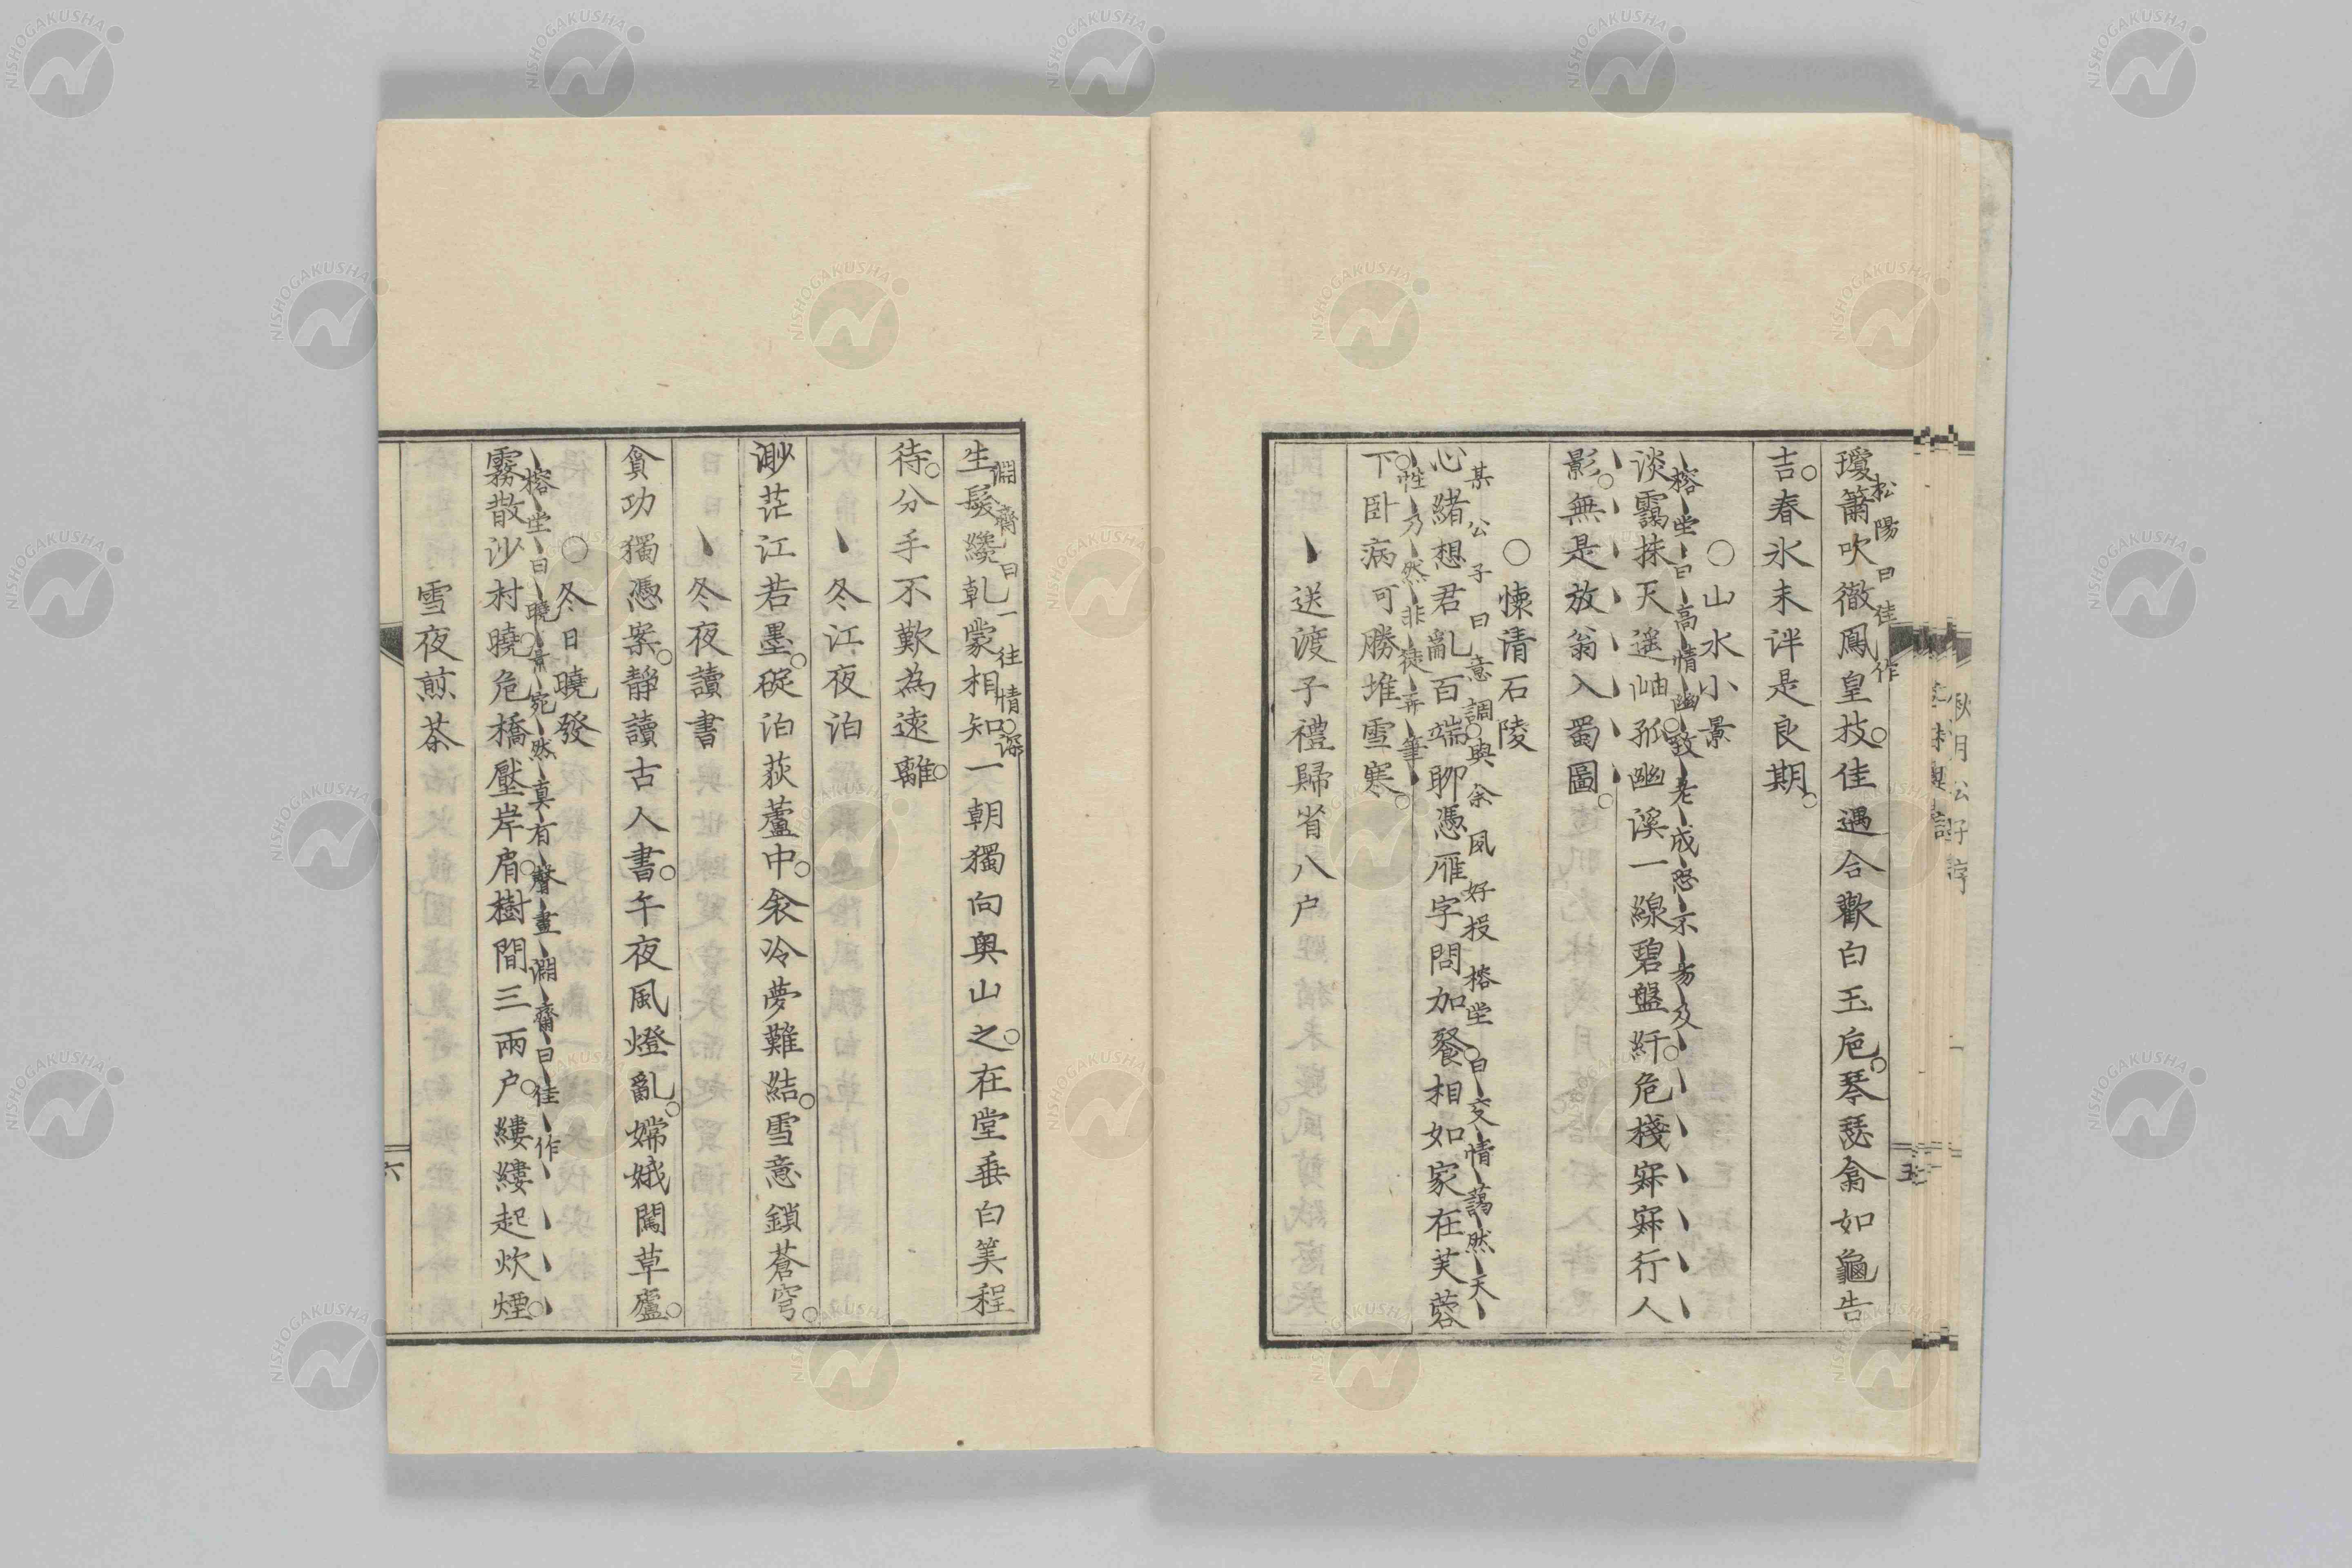 松陽曰佳作
瓊簫吹徹鳳皇枝佳遇合歡白玉卮琴瑟龠如龜告
吉春氷未泮是良期
○山水小景
榕堂曰高情幽致老成恐不易及
淡靄抹天遥岫孤幽溪一線碧盤紆危棧寂寂行人
影無是放翁入蜀圖
○懐清石陵
某公子曰意調與余夙好投榕堂曰交情藹然天
心緒想君亂百端聊憑雁字問加餐相如家在芙蓉
性乃然非徒弄筆
下臥病可勝堆雪寒
送渡子禮歸省八戸
五
淵齋曰一往情深
生髮纔乾蒙相知一朝獨向奥山之在堂垂白笑程
待分手不歎為遠離
冬江夜泊
渺茫江若墨碇泊荻蘆中衾冷夢難結雪意鎖蒼穹
冬夜讀書
貪功獨憑案靜讀古人書午夜風燈亂嫦娥闖草廬
○冬日曉發
榕堂曰曉景宛然真有聲畫淵齋曰佳作
霧散沙村曉危橋壓岸肩樹間三兩户縷縷起炊煙
雪夜煎茶
六
NISHOGAKUSHA